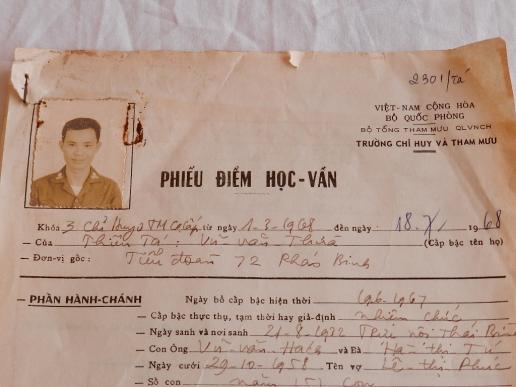 2301/Tá
VIỆT-NAM CỘNG HÒA
BỘ QUỐC PHÒNG
BỘ TỔNG THAM MƯU QLVNCH
TRƯỜNG CHỈ HUY VÀ THAM MƯU
PHIẾU ĐIỂM HỌC-VẤN
Khóa 3 Chỉ Huy TM Cao Cấp từ ngày 1-3-1968 đến ngày: 18.7/ 1968
— Của Thiếu Tá: Vũ văn Thừa (Cấp bậc tên họ)
— Đơn-vị gốc: Tiểu đoàn 72 Pháo Binh
— PHẦN HÀNH-CHÁNH Ngày bổ cấp bậc hiện thời 1967
— Cấp bậc thực thụ, tạm thời hay giả-định nhiên chức
— Ngày sanh và nơi sanh Thái Bình
— Con Ông Vũ văn và Bà thị Tú
— Ngày cưới 29-10-1958 Tên vợ Lê thị Phúc
— Số con năm (5) con